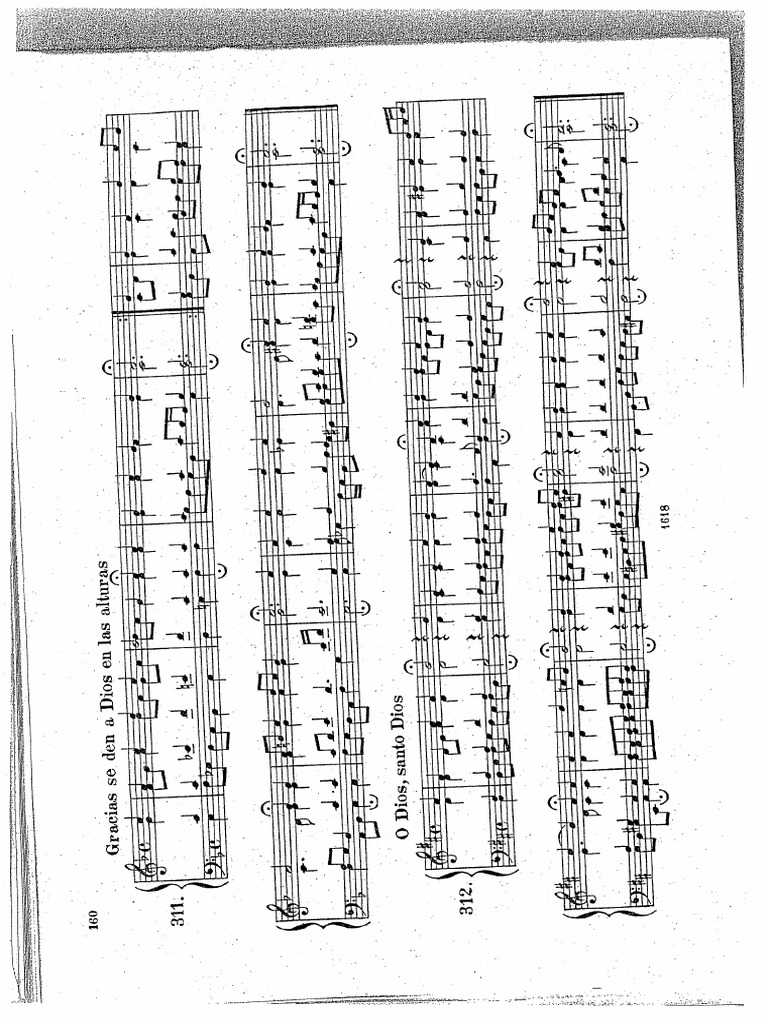 160
Gracias se den a Dios en las alturas
311.
O Dios, santo Dios
312.
1618